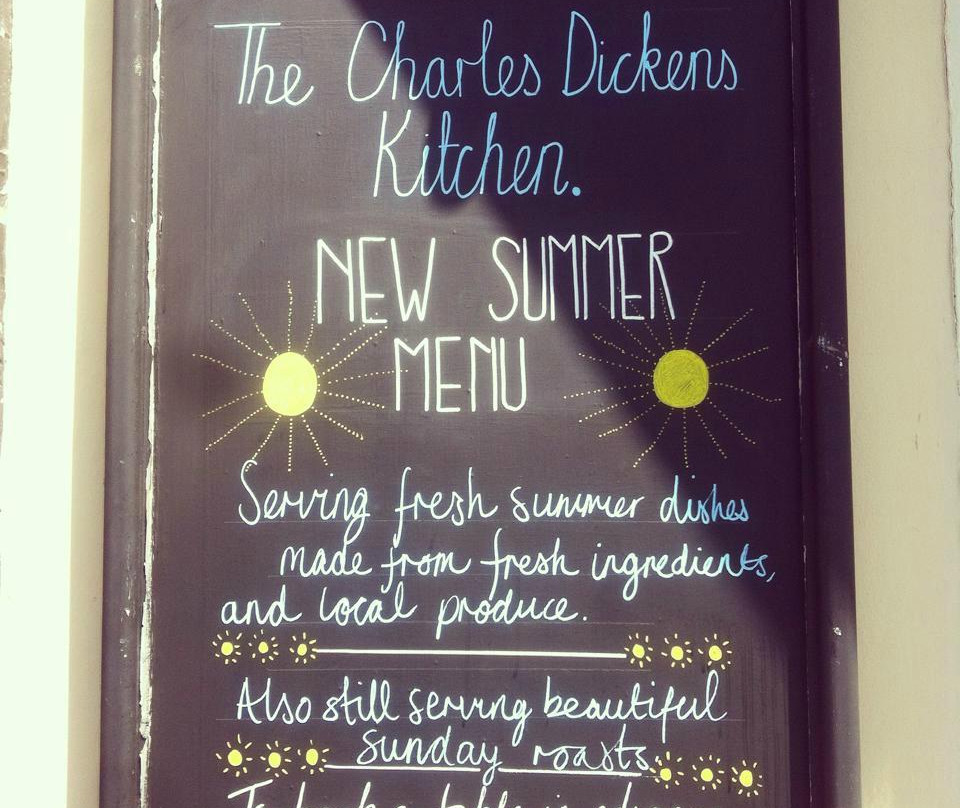 The Charles Dickens
Kitchen.
NEW SUMMER
MENU
Serving fresh summer dishes
made from fresh ingredients,
and local produce.
Also still serving beautiful
Sunday roasts